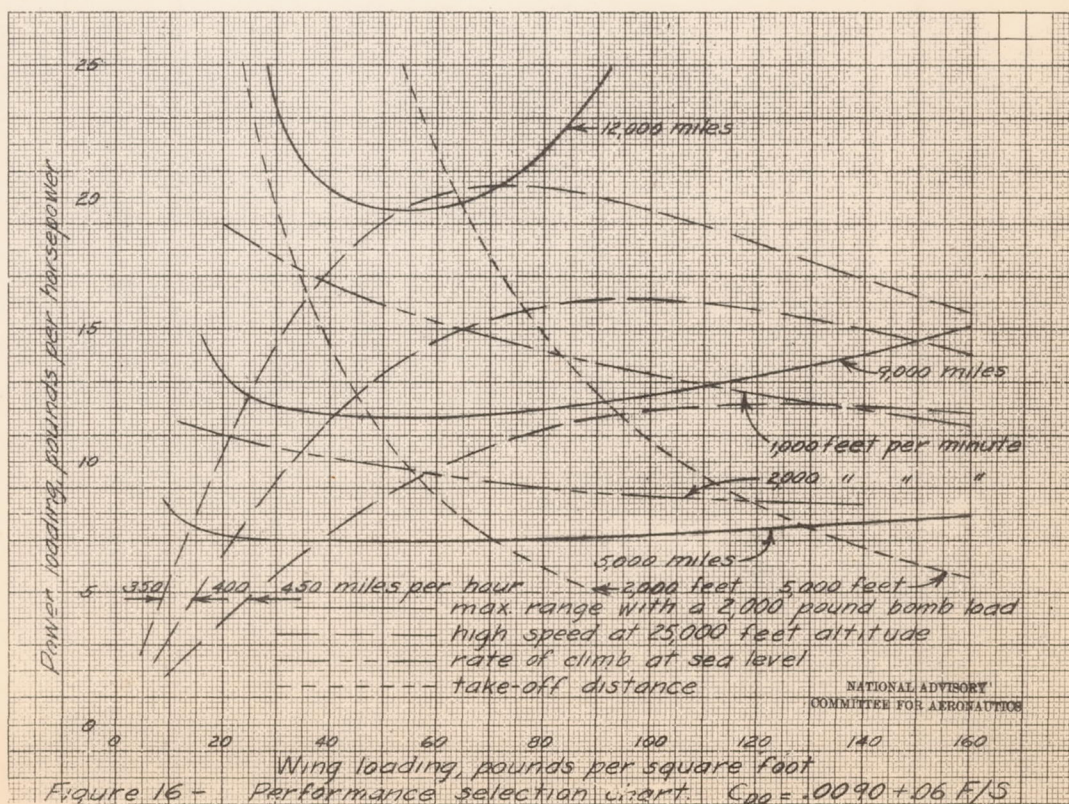 25
12,000 miles
20
Power loading, pounds per horsepower
15
9,000 miles
1,000 feet per minute
10
2,000 " " "
5,000 miles
350 400 450 miles per hour
2,000 feet 5,000 feet
5
max range with a 2,000 pound bomb load
high speed at 25,000 feet altitude
rate of climb at sea level
take-off distance
NATIONAL ADVISORY
COMMITTEE FOR AERONAUTICS
0
0 20 40 60 80 100 120 140 160
Wing loading, pounds per square foot
Figure 16 - Performance selection chart. CDO = .0090 + .06 F/S